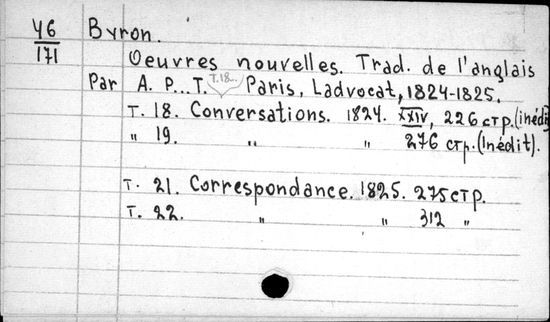 46 Byron.
171
Oeuvres nouvelles. Trad. de l'anglais
Par A. P... T. T. 18... Paris, Ladvocat, 1824-1825.
T. 18. Conversations. 1824. XXIV, 226 стр. (inédit
" 19. " " 276 стр. (Inédit).
T. 21. Correspondance. 1825. 275 стр.
T. 22. " " 312 "